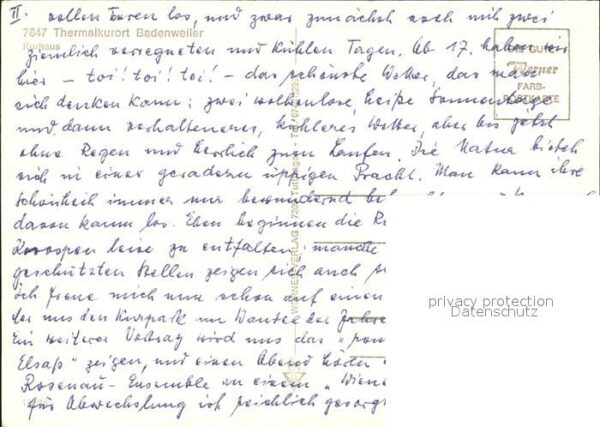 II. vollen Touren los, und zwar zunächst noch mit zwei
7847 Thermalkurort Badenweiler
Kurhaus
ziemlich verregneten und kühlen Tagen. Ab 17. haben wir
hier - toi! toi! toi! - das schönste Wetter, das man
sich denken kann: zwei wolkenlose, heiße Sonnentage
und dann verhalteneres, kühleres Wetter, aber bis jetzt
ohne Regen und herrlich zum Laufen. Die Natur bietet
sich in einer geradezu üppigen Pracht. Man kann ihre
Schönheit immer nur bewundernd
davon kaum los. Eben beginnen die
Knospen leise zu entfalten - manche
geschützten Stellen zeigen sich auch
Ich freue mich nun schon auf einen
der uns den Kurpark im Wandel der
Ein weiterer Vortrag wird uns das
Elsaß" zeigen, und einen Abend
Rosenau-Ensemble an einem „Wiene
Für Abwechslung ist reichlich gesorg
DIE GUTE
Werner
FARB-
POSTKARTE
WERNER VERLAG
privacy protection
Datenschutz